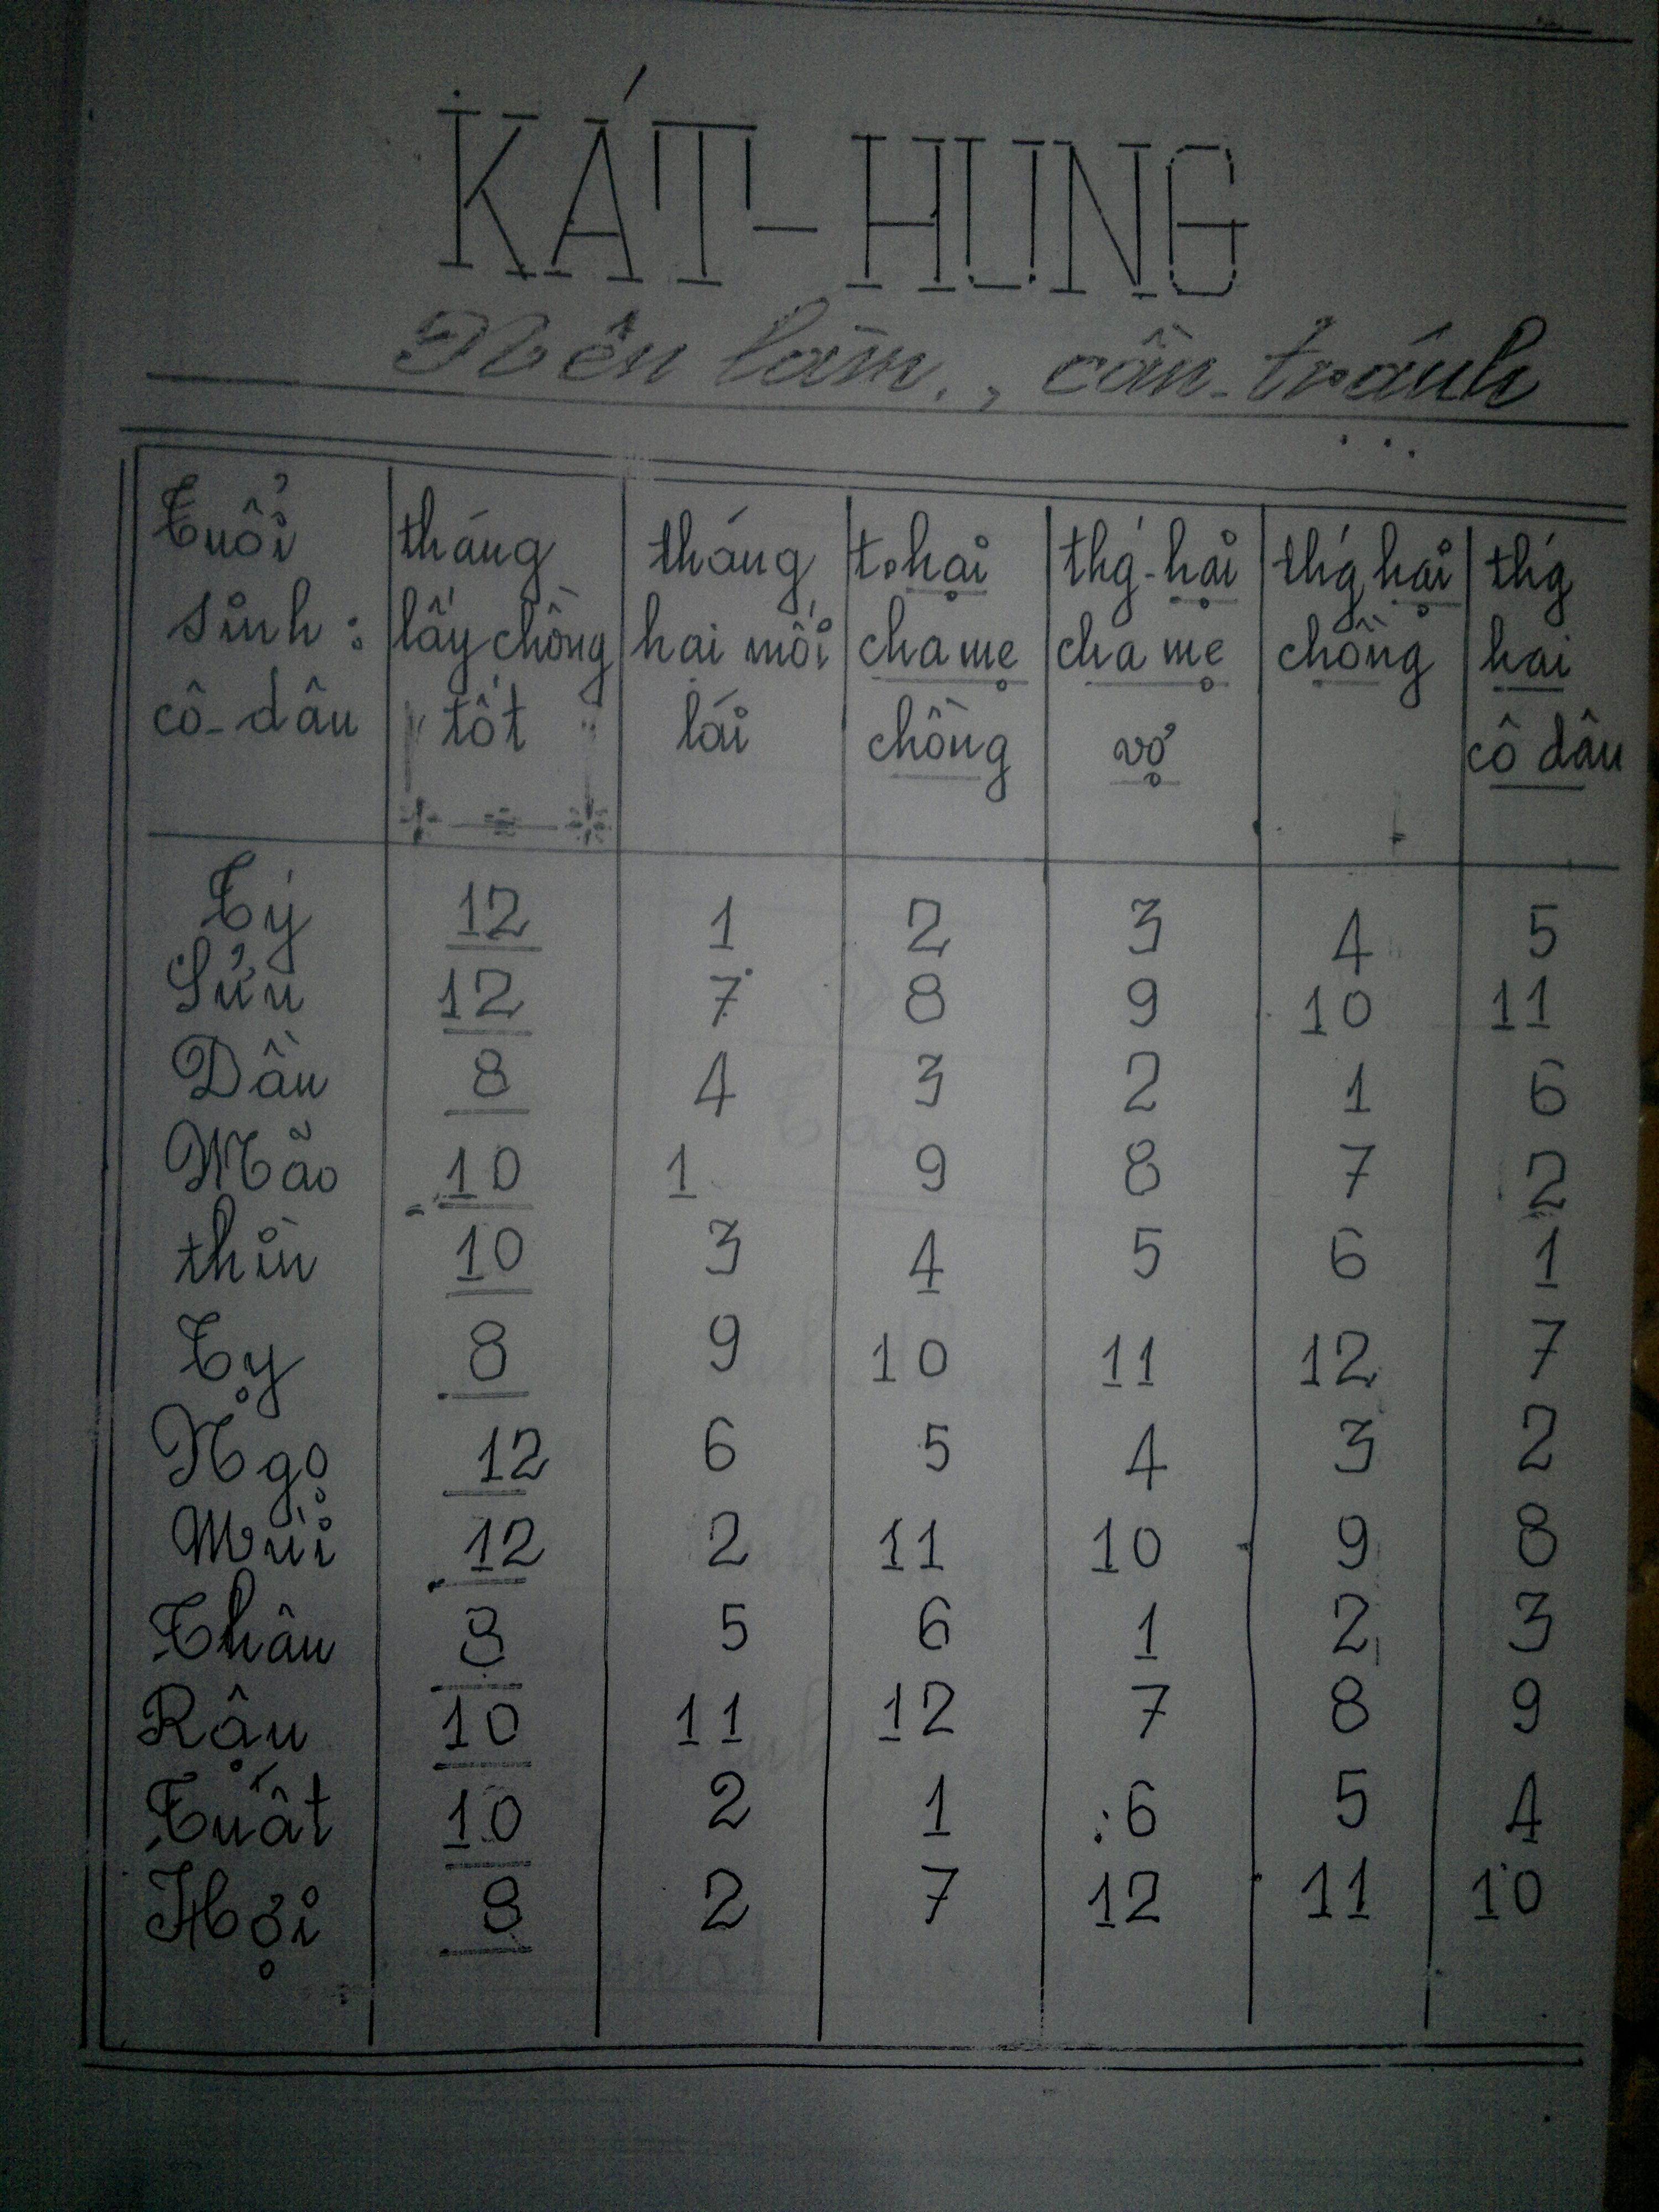 KÁT - HUNG
Nên làm., cần-tránh
...
Tuổi sinh: cô-dâu | tháng lấy chồng tốt | tháng hai mối lái | t.hại cha mẹ chồng | thg-hại cha mẹ vợ | thg hại chồng | thg hai cô dâu
Tý 12 1 2 3 4 5
Sửu 12 7 8 9 10 11
Dần 8 4 3 2 1 6
Mão 10 1 9 8 7 2
thìn 10 3 4 5 6 1
Tỵ 8 9 10 11 12 7
Ngọ 12 6 5 4 3 2
Mùi 12 2 11 10 9 8
Thân 8 5 6 1 2 3
Rậu 10 11 12 7 8 9
Tuất 10 2 1 6 5 4
Hợi 8 2 7 12 11 10